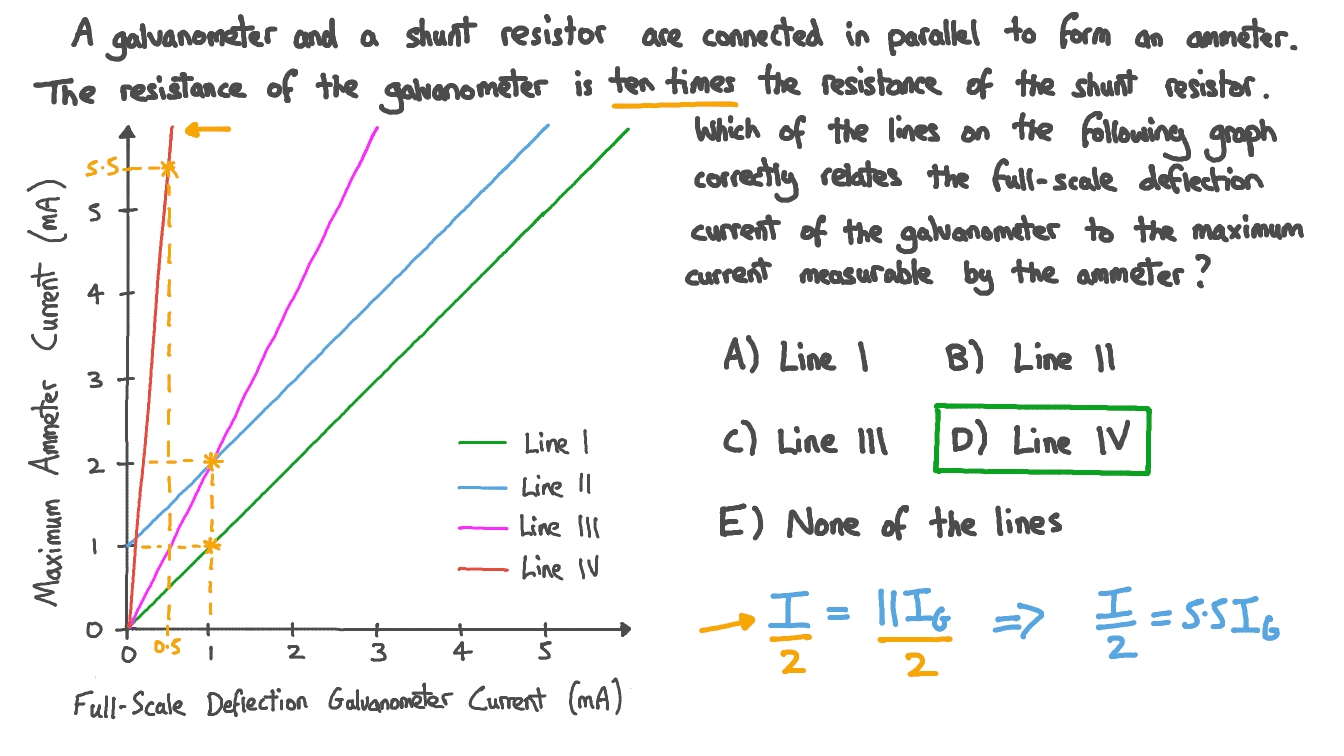 A galvanometer and a shunt resistor are connected in parallel to form an ammeter.
The resistance of the galvanometer is ten times the resistance of the shunt resistor.
Which of the lines on the following graph
correctly relates the full-scale deflection
current of the galvanometer to the maximum
current measurable by the ammeter?
A) Line I
B) Line II
C) Line III
D) Line IV
E) None of the lines
I/2 = 11I_G/2 => I/2 = 5.5I_G
Maximum Ammeter Current (mA)
5.5
5
4
3
2
1
0
0 0.5 1 2 3 4 5
Full-Scale Deflection Galvanometer Current (mA)
Line I
Line II
Line III
Line IV